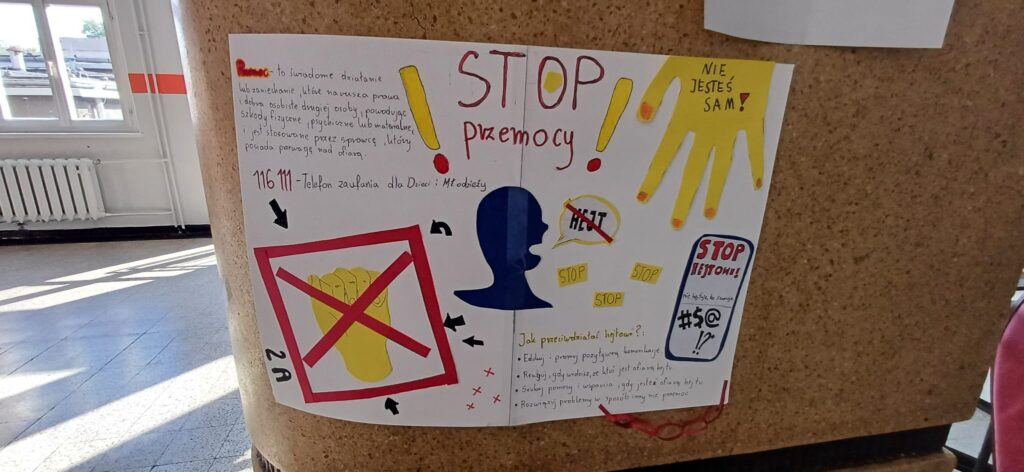 Przemoc - to świadome działanie
lub zaniechanie, które narusza prawa
i dobra osobiste drugiej osoby, powodując
szkody fizyczne, psychiczne lub materialne,
i jest stosowane przez sprawcę, który
posiada przewagę nad ofiarą.
116 111 - Telefon zaufania dla Dzieci i Młodzieży
STOP
przemocy
NIE
JESTEŚ
SAM!
HEJT
STOP
STOP
STOP
STOP
HEJTOWI!
#$@
!?
2A
Jak przeciwdziałać hejtowi?:
• Edukuj i promuj pozytywną komunikację
• Reaguj, gdy widzisz, że ktoś jest ofiarą hejtu
• Szukaj pomocy i wsparcia, gdy jesteś ofiarą hejtu
• Rozwiązuj problemy w sposób inny niż przemoc